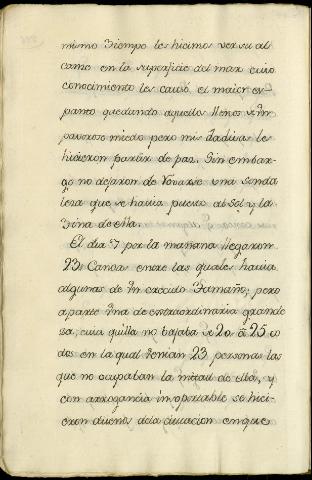 mismo Tiempo les hicimos ver su al
cance en la superficie del mar cuio
conocimiento les causó el maior es
panto quedando aquellos llenos de vn
pavoroso miedo pero mis dadivas le
hicieron partir de paz. Sin embar
go no dejaron de rovarse una sonda
leza que se havia puesto al sol y la
Tina de ella.
El dia 7 por la mañana llegaron
23 Canoas entre las quales havia
algunas de vn crecido Tamaño; pero
aparte vna de extraordinaria grande
za, cuia quilla no bajaba de 20 â 25 co
dos en la qual venian 23 personas las
que no ocupaban la mitad de ella, y
con arrogancia insoportable se hici-
eron dueños de la situacion en que